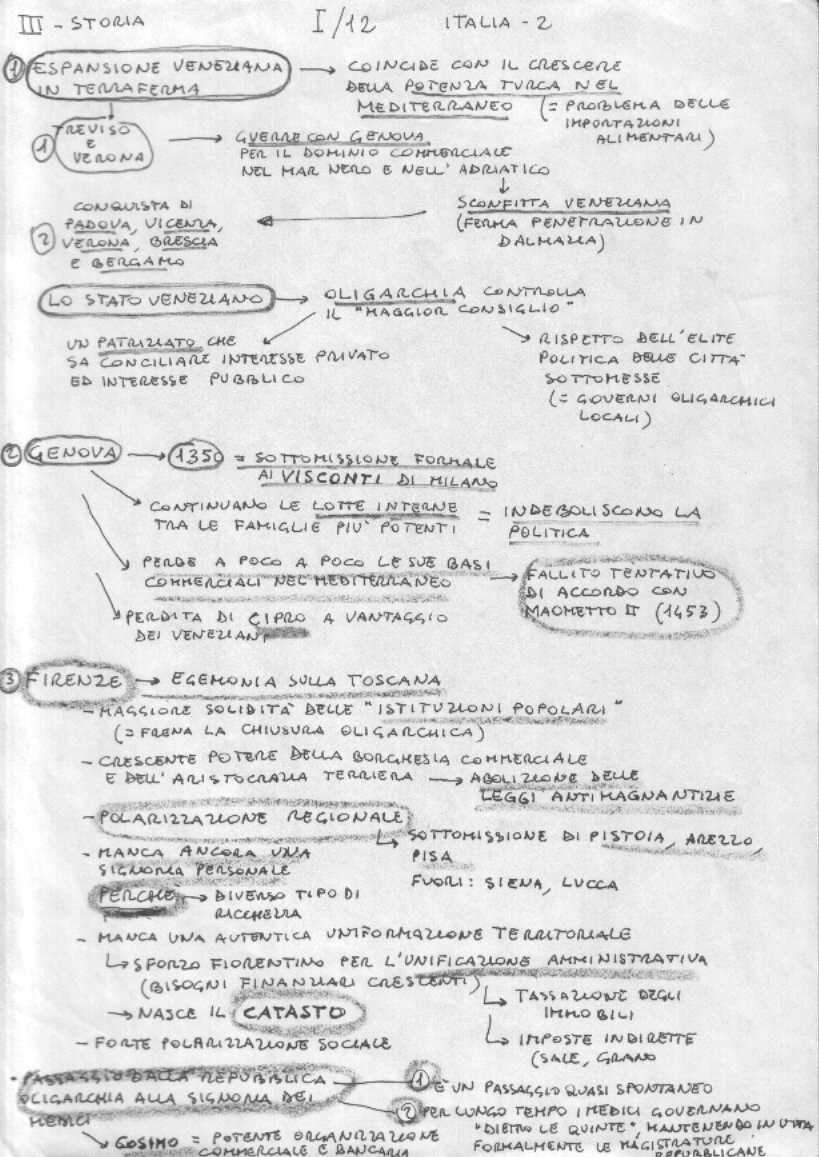 III - STORIA I/12 ITALIA - 2
1 ESPANSIONE VENEZIANA → COINCIDE CON IL CRESCERE
IN TERRAFERMA DELLA POTENZA TURCA NEL
MEDITERRANEO (= PROBLEMA DELLE
IMPORTAZIONI
ALIMENTARI)
1 TREVISO
E
VERONA
→ GUERRE CON GENOVA
PER IL DOMINIO COMMERCIALE
NEL MAR NERO E NELL'ADRIATICO
↓
SCONFITTA VENEZIANA
(FERMA PENETRAZIONE IN
DALMAZIA)
CONQUISTA DI
2 PADOVA, VICENZA,
VERONA, BRESCIA
E BERGAMO
LO STATO VENEZIANO → OLIGARCHIA CONTROLLA
IL "MAGGIOR CONSIGLIO"
UN PATRIZIATO CHE
SA CONCILIARE INTERESSE PRIVATO
ED INTERESSE PUBBLICO
→ RISPETTO DELL'ELITE
POLITICA DELLE CITTA'
SOTTOMESSE
(= GOVERNI OLIGARCHICI
LOCALI)
2 GENOVA → 1350 = SOTTOMISSIONE FORMALE
AI VISCONTI DI MILANO
CONTINUANO LE LOTTE INTERNE = INDEBOLISCONO LA
TRA LE FAMIGLIE PIU' POTENTI POLITICA
PERDE A POCO A POCO LE SUE BASI
COMMERCIALI NEL MEDITERRANEO →
FALLITO TENTATIVO
DI ACCORDO CON
MAOMETTO II (1453)
PERDITA DI CIPRO A VANTAGGIO
DEI VENEZIANI
3 FIRENZE → EGEMONIA SULLA TOSCANA
- MAGGIORE SOLIDITA' DELLE "ISTITUZIONI POPOLARI"
(= FRENA LA CHIUSURA OLIGARCHICA)
- CRESCENTE POTERE DELLA BORGHESIA COMMERCIALE
E DELL'ARISTOCRAZIA TERRIERA → ABOLIZIONE DELLE
LEGGI ANTIMAGNANTIZIE
- POLARIZZAZIONE REGIONALE
↳ SOTTOMISSIONE DI PISTOIA, AREZZO,
PISA
FUORI: SIENA, LUCCA
- MANCA ANCORA UNA
SIGNORIA PERSONALE
PERCHE' → DIVERSO TIPO DI
RICCHEZZA
- MANCA UNA AUTENTICA UNIFORMAZIONE TERRITORIALE
↳ SFORZO FIORENTINO PER L'UNIFICAZIONE AMMINISTRATIVA
(BISOGNI FINANZIARI CRESCENTI)
↳ TASSAZIONE DEGLI
IMMOBILI
→ NASCE IL CATASTO
↳ IMPOSTE INDIRETTE
(SALE, GRANO
- FORTE POLARIZZAZIONE SOCIALE
- PASSAGGIO DALLA REPUBBLICA
OLIGARCHIA ALLA SIGNORIA DEI
MEDICI
1 È UN PASSAGGIO QUASI SPONTANEO
2 PER LUNGO TEMPO I MEDICI GOVERNANO
"DIETRO LE QUINTE", MANTENENDO IN VITA
FORMALMENTE LE MAGISTRATURE
REPUBBLICANE
COSIMO = POTENTE ORGANIZZAZIONE
COMMERCIALE E BANCARIA